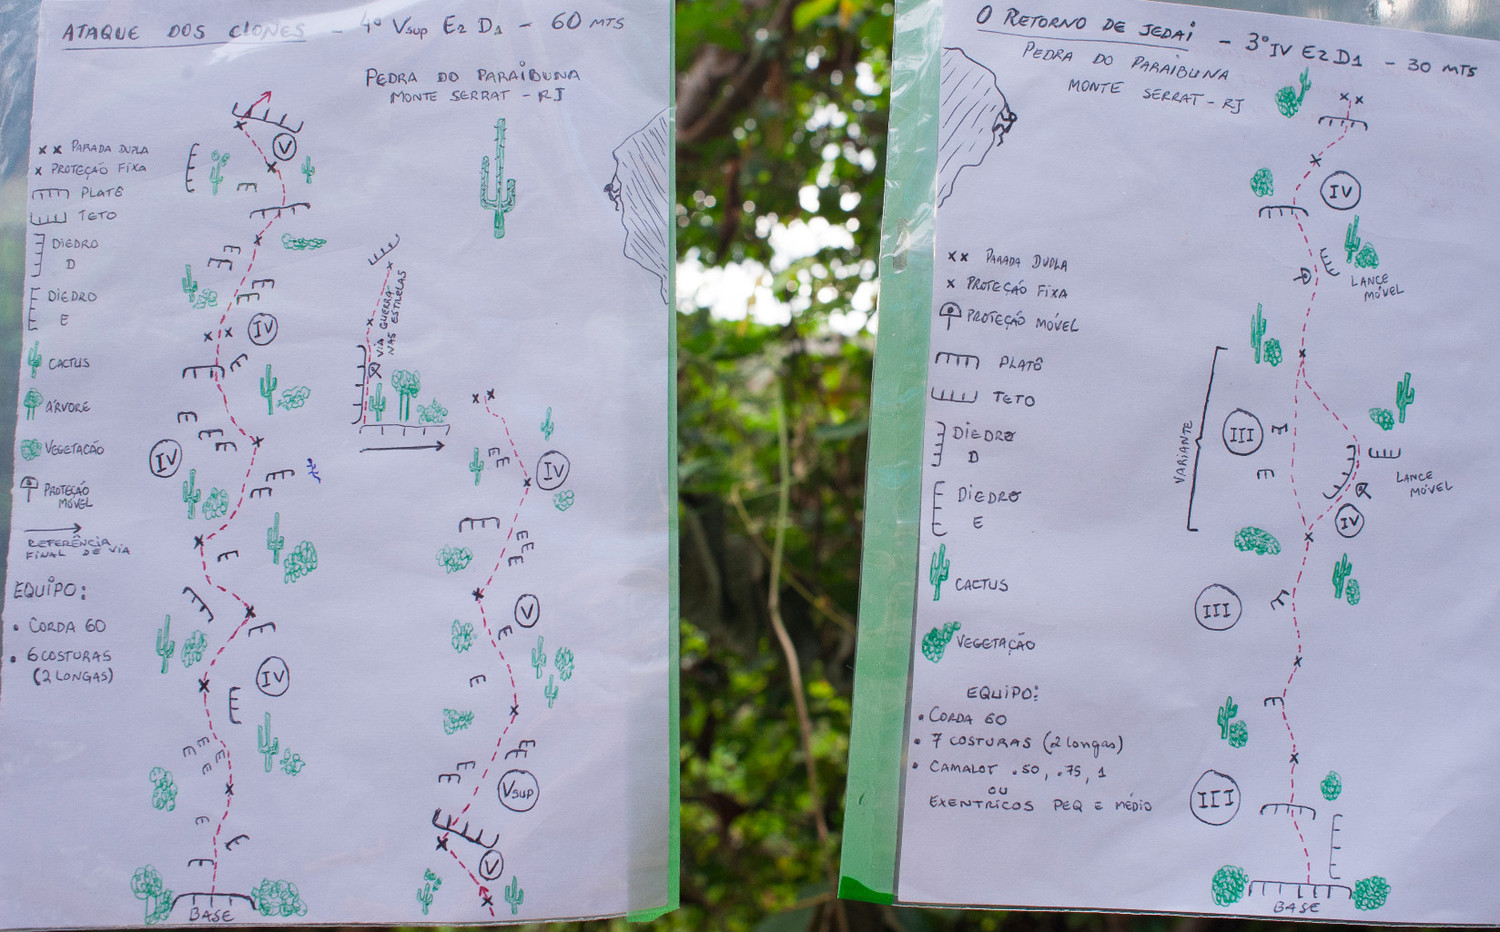 ATAQUE DOS CLONES - 4º Vsup E2 D1 - 60 MTS
PEDRA DO PARAIBUNA
MONTE SERRAT - RJ
x x PARADA DUPLA
x PROTEÇÃO FIXA
PLATÔ
TETO
DIEDRO
D
DIEDRO
E
CACTUS
ÁRVORE
VEGETAÇÃO
PROTEÇÃO
MÓVEL
REFERÊNCIA
FINAL DE VIA
EQUIPO:
• CORDA 60
• 6 COSTURAS
(2 LONGAS)
V
IV
IV
IV
BASE
VIA GUERRA
NAS ESTRELAS
IV
V
Vsup
V
O RETORNO DE JEDAI - 3º IV E2 D1 - 30 MTS
PEDRA DO PARAIBUNA
MONTE SERRAT - RJ
xx PARADA DUPLA
x PROTEÇÃO FIXA
PROTEÇÃO MÓVEL
PLATÔ
TETO
DIEDRO
D
DIEDRO
E
CACTUS
VEGETAÇÃO
EQUIPO:
• CORDA 60
• 7 COSTURAS (2 longas)
• CAMALOT .50, .75, 1
OU
EXENTRICOS PEQ E MÉDIO
IV
LANCE
MÓVEL
VARIANTE
III
LANCE
MÓVEL
IV
III
III
BASE